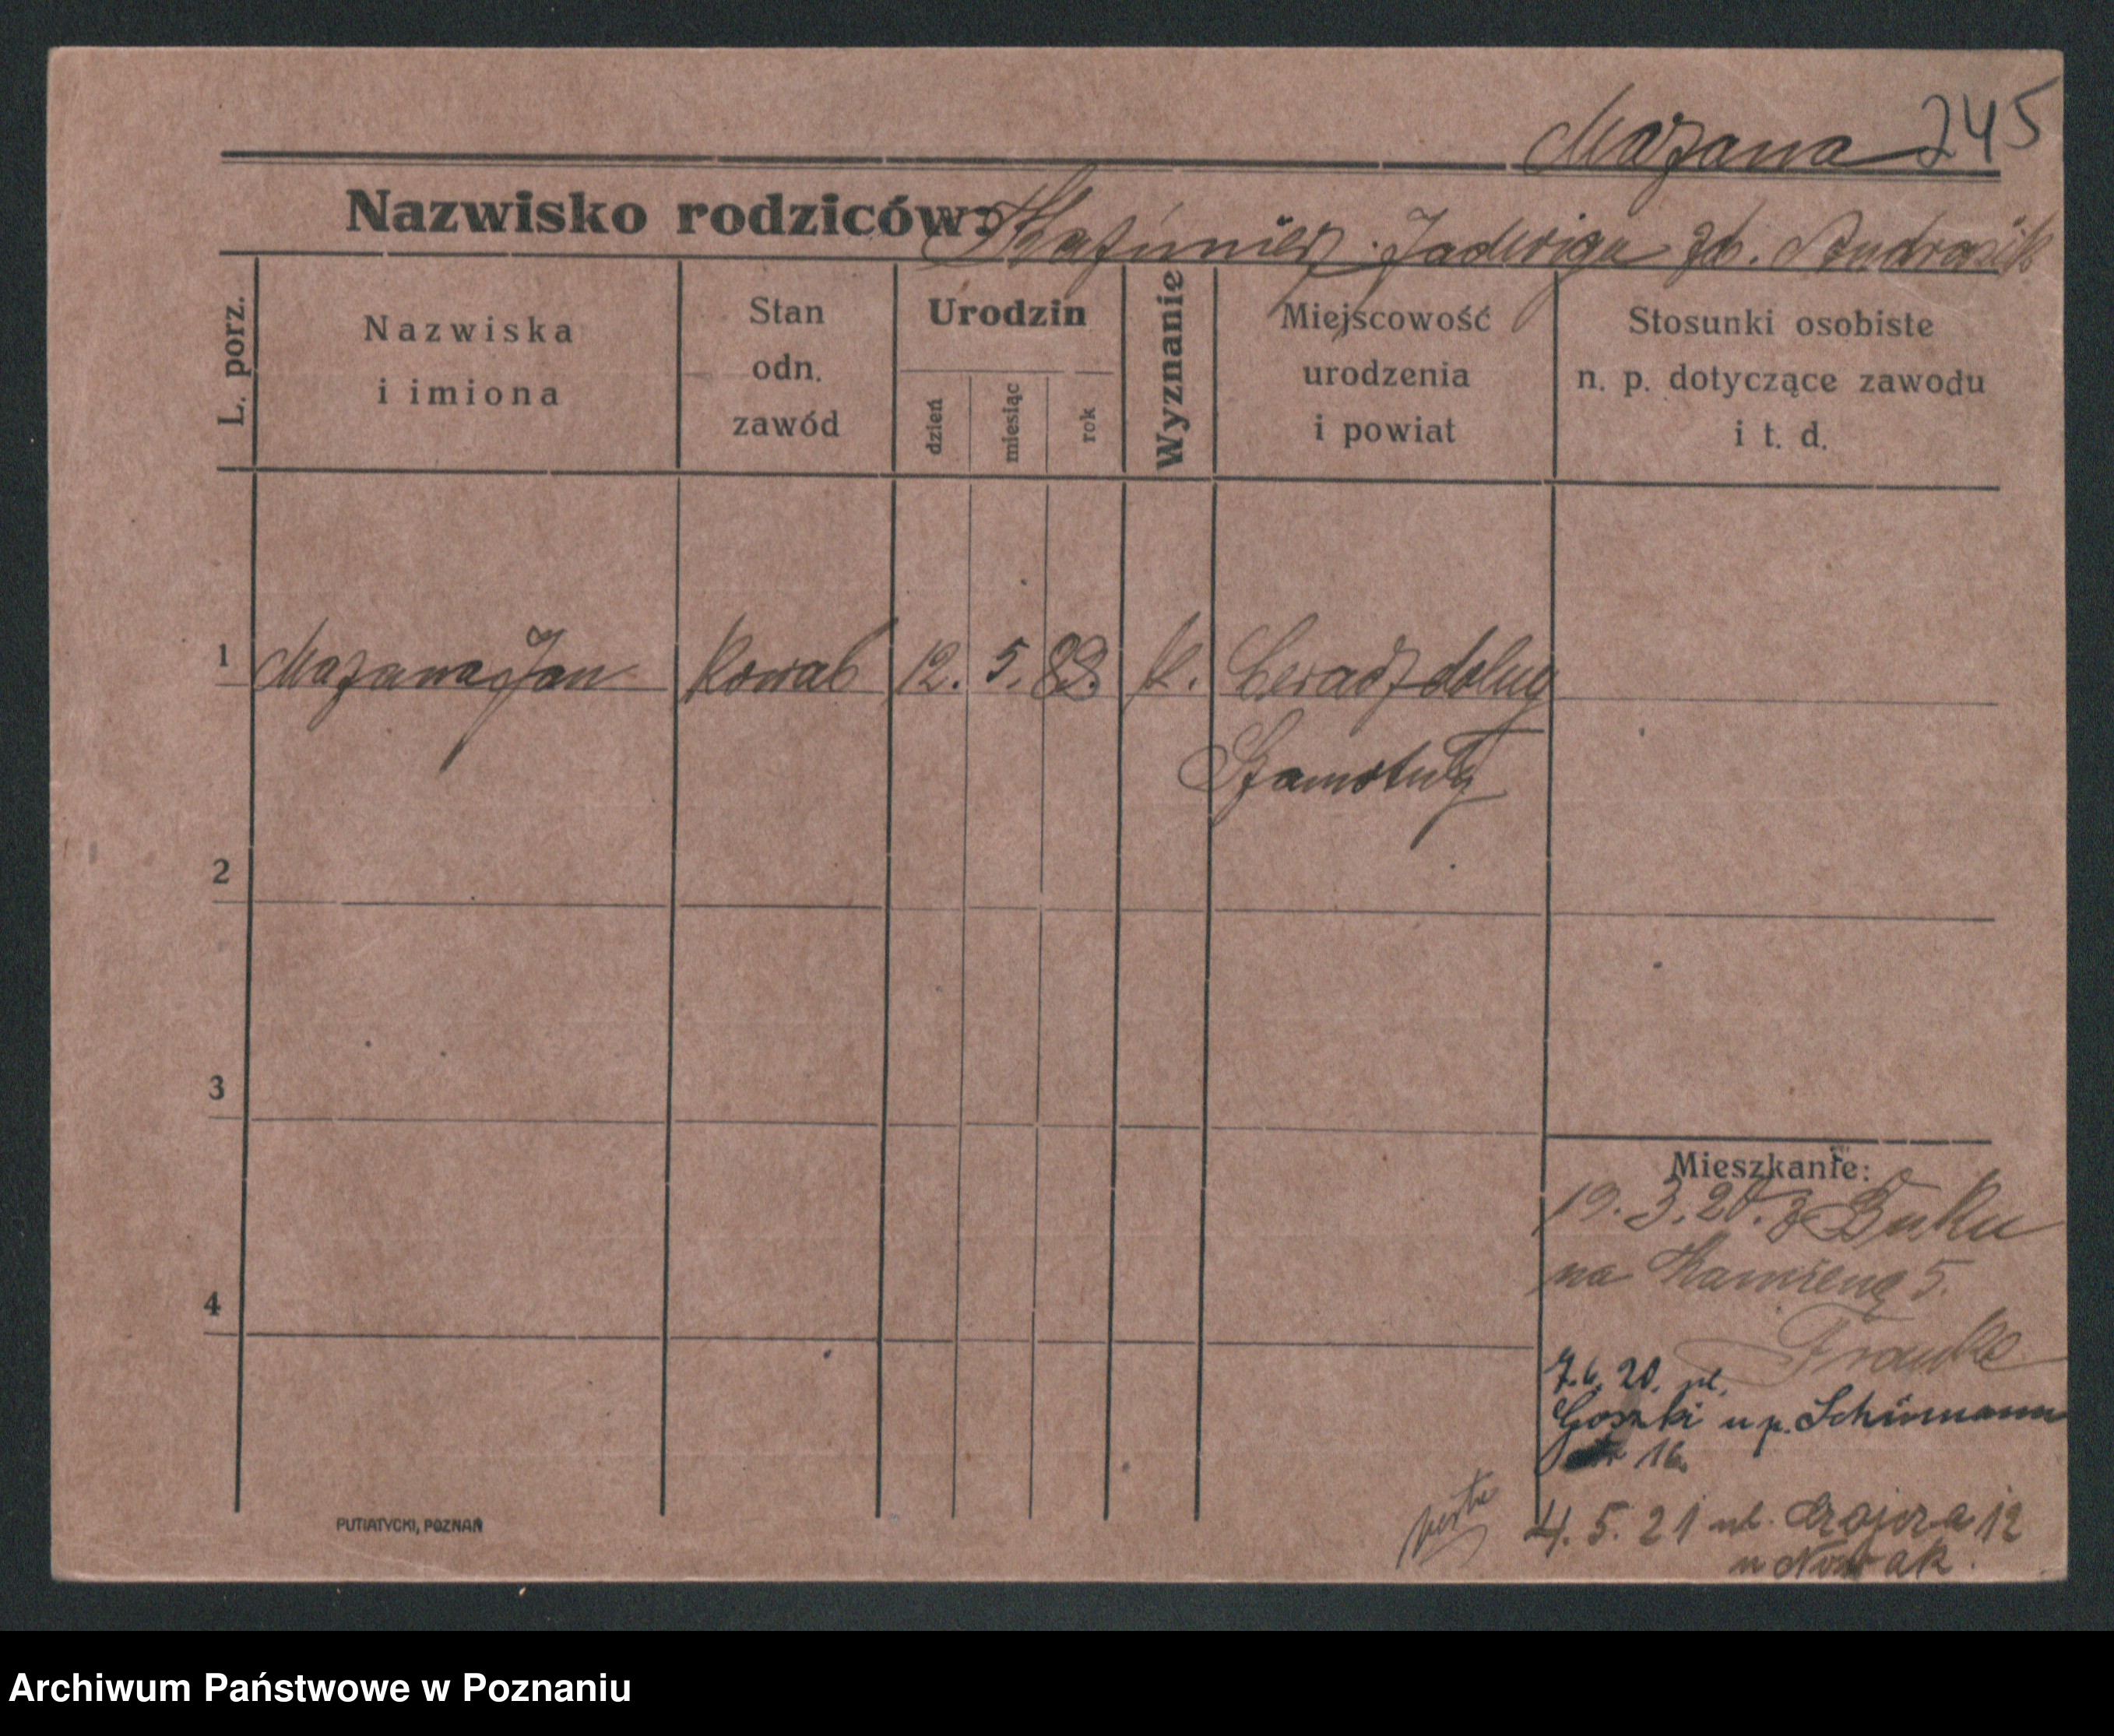 Mazana 245
Nazwisko rodziców: Kazimierz Jadwiga zd. Andrasik
L. porz.
Nazwiska
i imiona
Stan
odn.
zawód
Urodzin
dzień
miesiąc
rok
Wyznanie
Miejscowość
urodzenia
i powiat
Stosunki osobiste
n. p. dotyczące zawodu
i t. d.
1 Mazana Jan Kowal 12. 5. 83. k. Ceradz dolny
Szamotuły
2
3
4
Mieszkanie:
19. 3. 20. z Buku
na Kamieną 5.
Franke
7.6. 20. pl.
u p. Schürmann
16.
4. 5. 21 ul. 12
u Nowak.
PUTIATYCKI, POZNAŃ
Archiwum Państwowe w Poznaniu